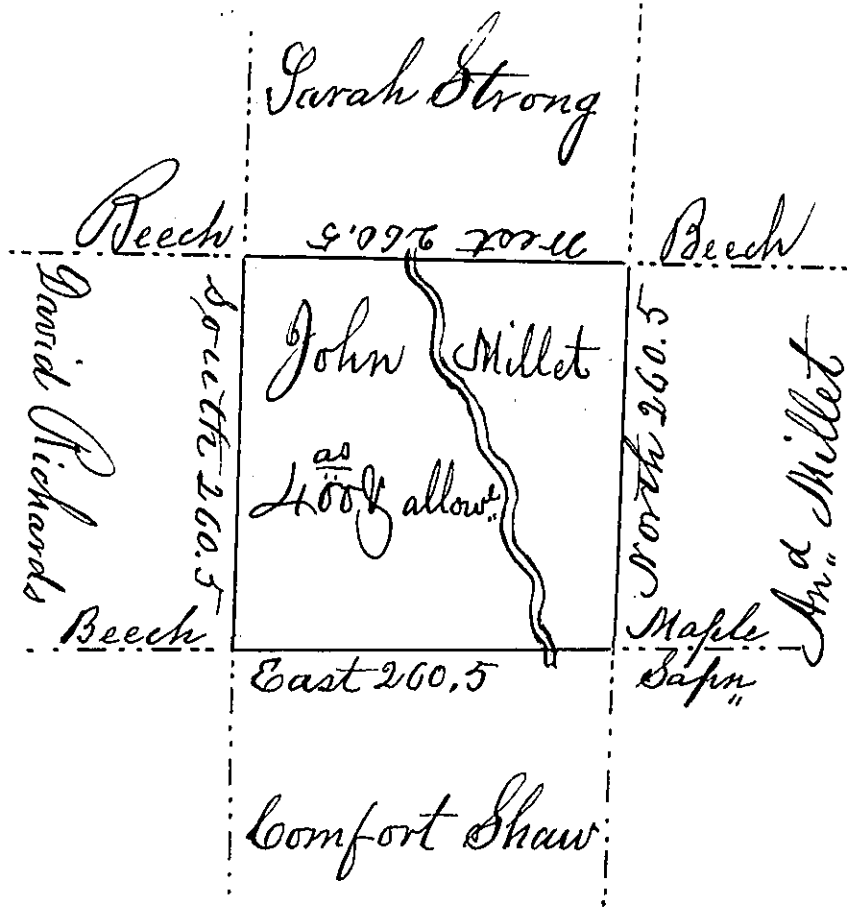 Sarah Strong
Beech
West 260.5
Beech
David Richards
South 260.5
John Millet
400 as & allowe
North 260.5
And Millet
Beech
Maple
Sapn
East 260.5
Comfort Shaw